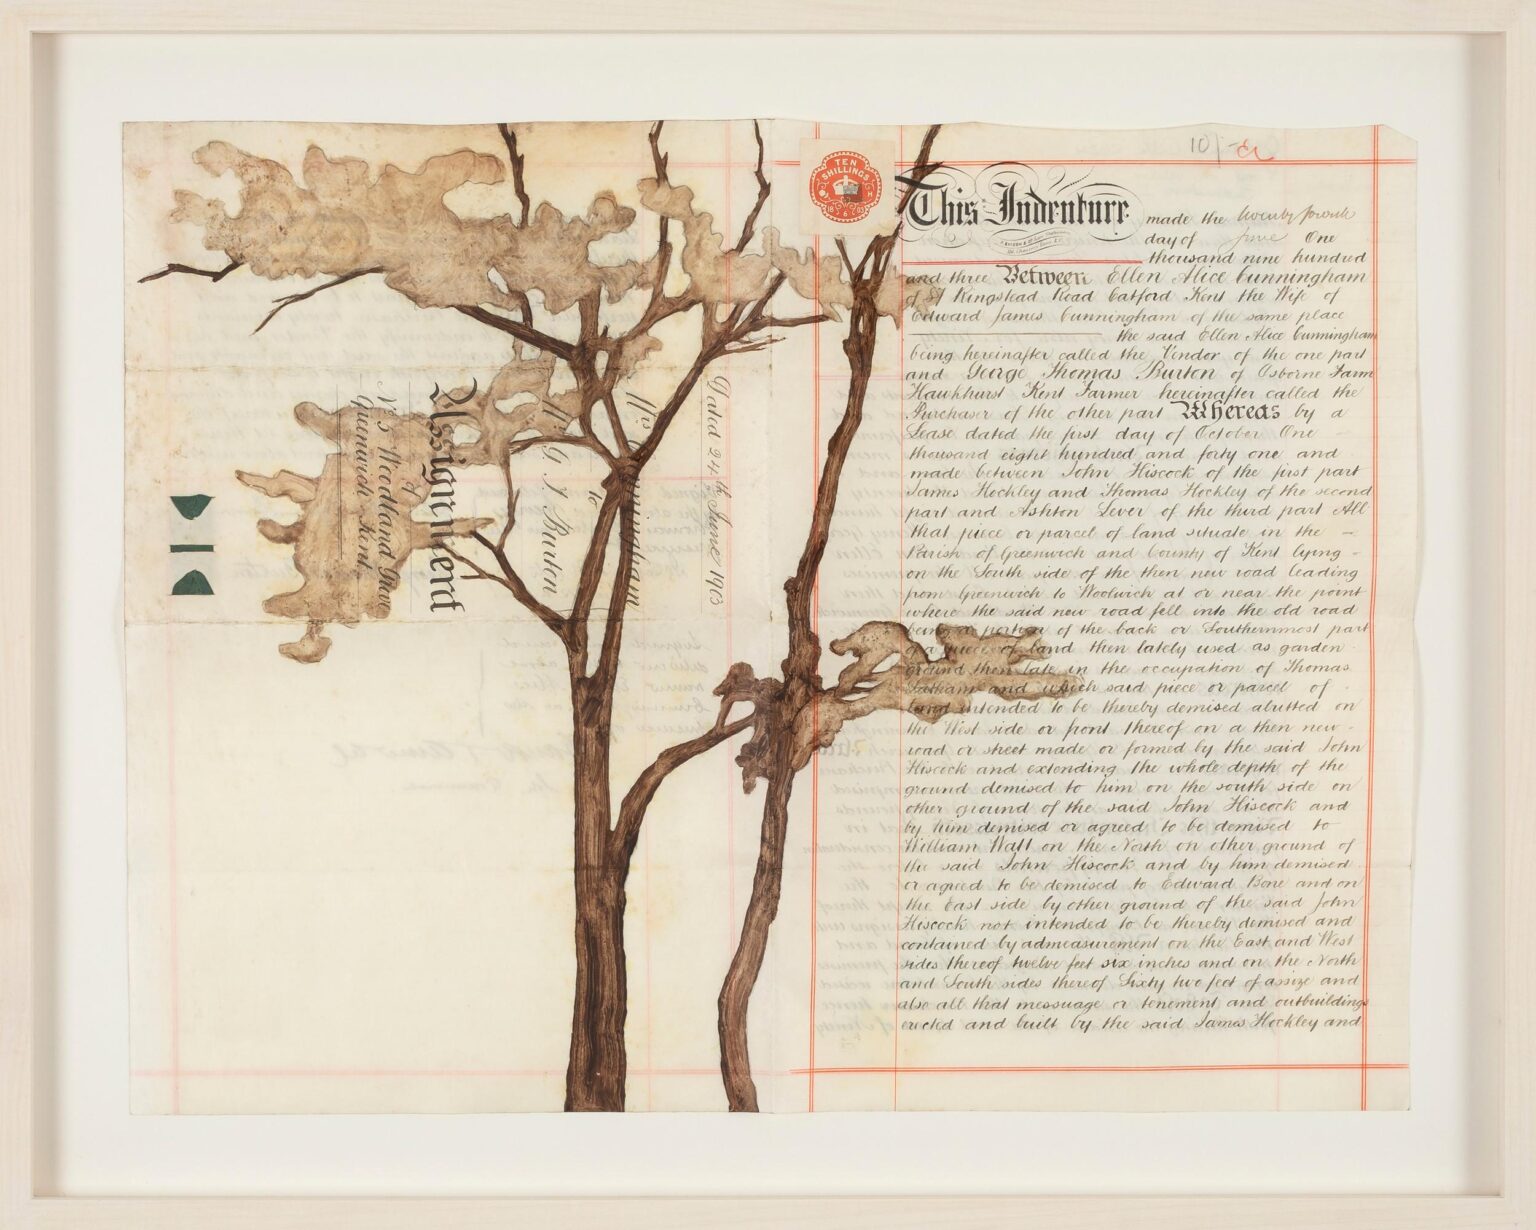 10/-
TEN
SHILLINGS
This Indenture made the twenty fourth
day of June One
thousand nine hundred
and three Between Ellen Alice Cunningham
of 57 Kingstead Road Catford Kent the Wife of
Edward James Cunningham of the same place
the said Ellen Alice Cunningham
being hereinafter called the Vendor of the one part
and George Thomas Burton of Osborne Farm
Hawkhurst Kent Farmer hereinafter called the
Purchaser of the other part Whereas by a
Lease dated the first day of October One
thousand eight hundred and forty one and
made between John Hiscock of the first part
James Hockley and Thomas Hockley of the second
part and Ashton Lever of the third part All
that piece or parcel of land situate in the
Parish of Greenwich and County of Kent lying
on the South side of the then new road leading
from Greenwich to Woolwich at or near the point
where the said new road fell into the old road
being a portion of the back or Southernmost part
of a piece of land then lately used as garden
ground then late in the occupation of Thomas
and which said piece or parcel of
land intended to be thereby demised abutted on
the West side or front thereof on a then new
road or street made or formed by the said John
Hiscock and extending the whole depth of the
ground demised to him on the south side on
other ground of the said John Hiscock and
by him demised or agreed to be demised to
William Watt on the North on other ground of
the said John Hiscock and by him demised
or agreed to be demised to Edward Bone and on
the East side by other ground of the said John
Hiscock not intended to be thereby demised and
contained by admeasurement on the East and West
sides thereof twelve feet six inches and on the North
and South sides thereof Sixty two feet of assize and
also all that messuage or tenement and outbuildings
erected and built by the said James Hockley and
Dated 24th June 1903
Mrs Cunningham
to
G. T. Burton
Assignment
of
No 5 Woodland Place
Greenwich Kent